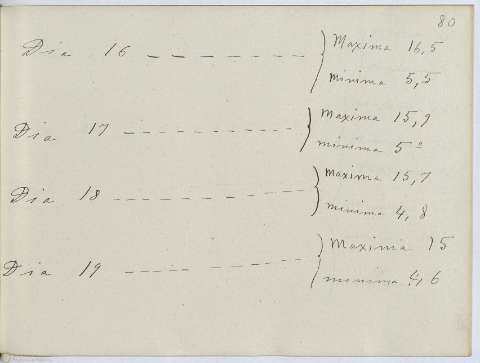 80
Dia 16 — — — — — — Maxima 16,5
minima 5,5
Dia 17 — — — — — — — Maxima 15,9
minima 5º
Dia 18 — — — — — — — Maxima 15,7
minima 4,8
Dia 19 — — — — — — Maxima 15
minima 4,6